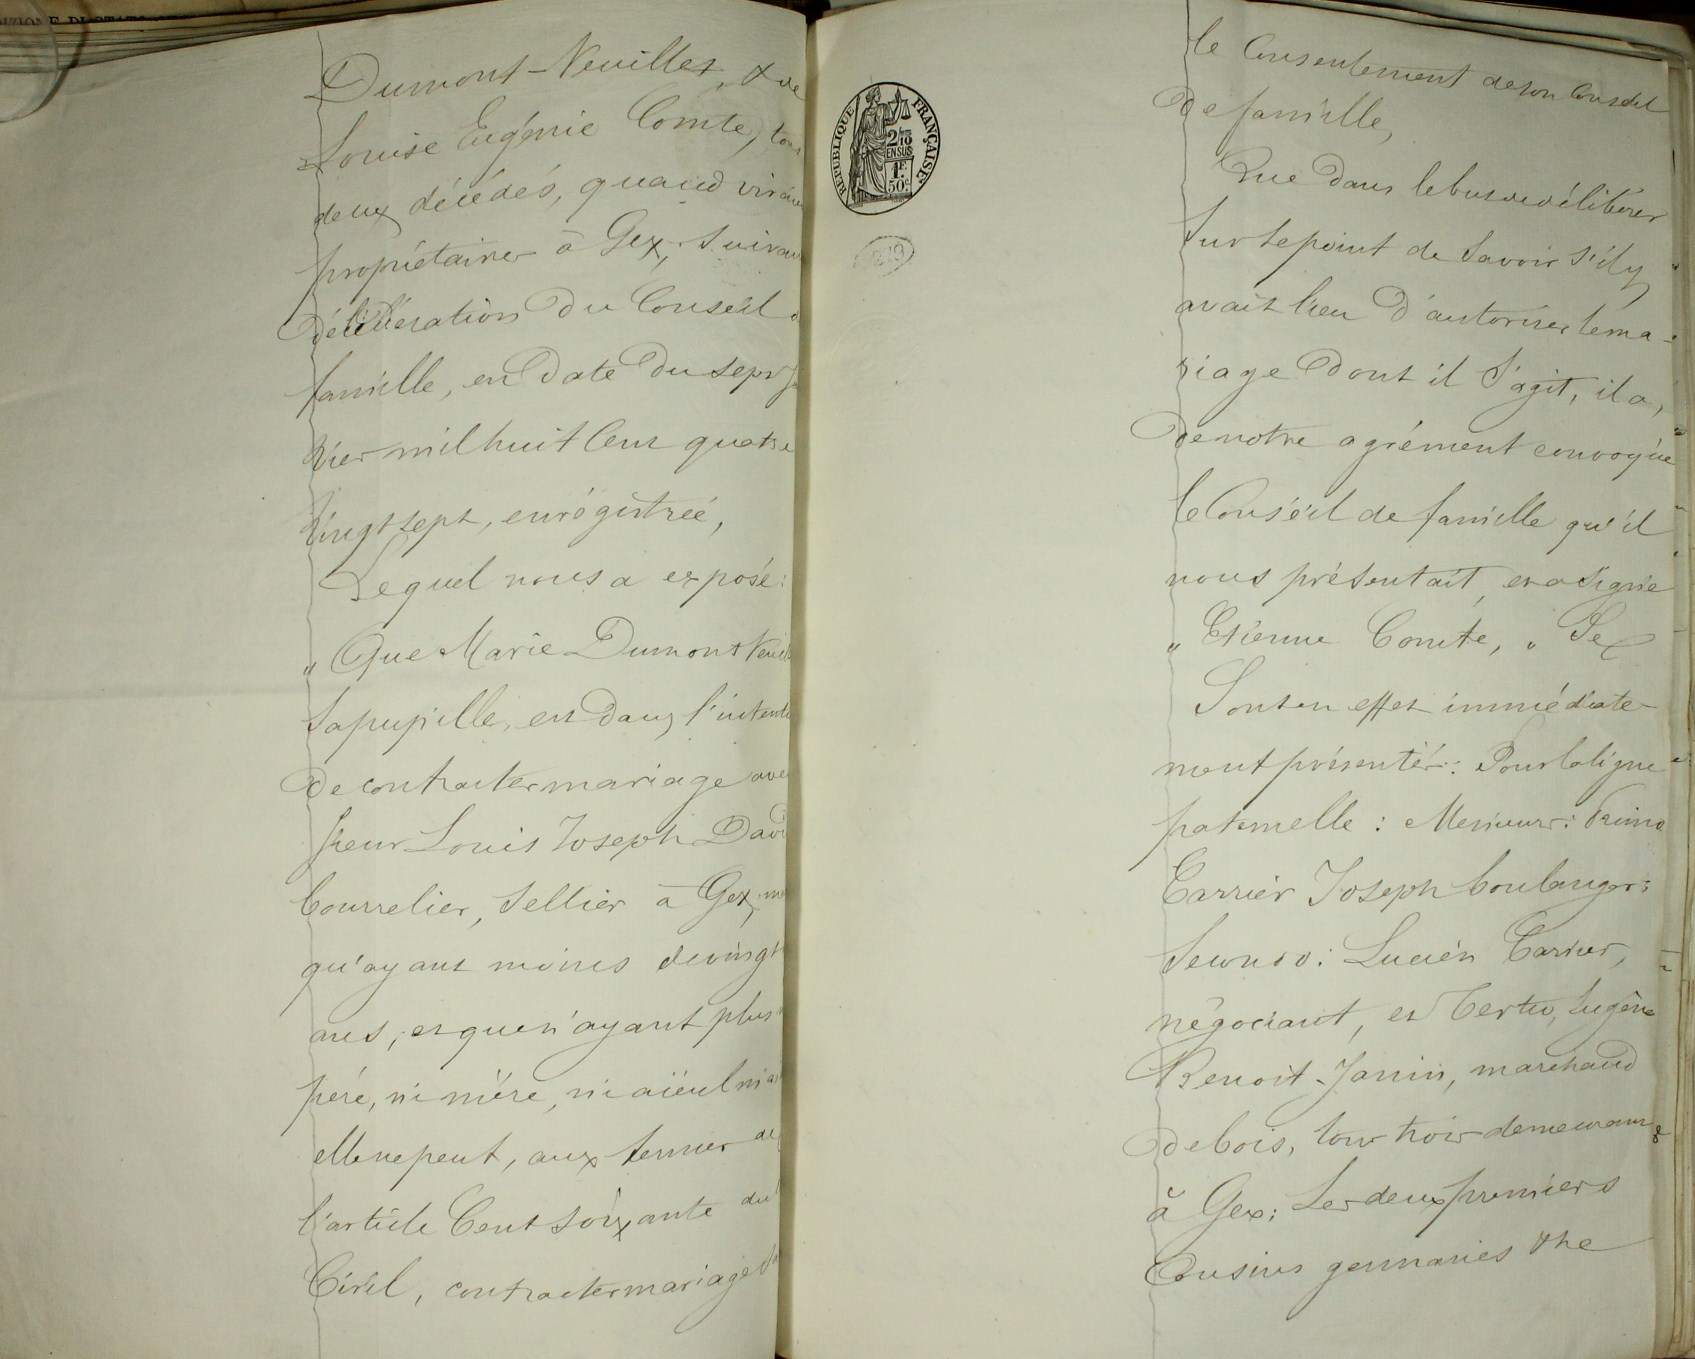 Dumont-Neuillet, & de
Louise Eugénie Comte, tous
deux décédés, quand vivaient
propriétaires à Gex, suivant
délibération du Conseil d
famille, en date du sept j
vier mil huit cent quatre
vingt sept, enrégistrée,
Lequel nous a exposé:
„ Que Marie Dumont Neuil
sa pupille, est dans l'intenti
de contracter mariage ave
sieur Louis Joseph Davi
bourrelier, sellier à Gex,
qu'ayant moins de vingt
ans, et que n'ayant plus
père, ni mère, ni aïeul ni a
elle ne peut, aux termes de
l'article Cent soixante du
Civil, contracter mariage
le Consentement de son Conseil
de famille,
Que dans le but de délibérer
sur le point de savoir s'il y
avait lieu d'autoriser le ma-
riage dont il s'agit, il a,
de notre agrément convoqué
le Conseil de famille qu'il
nous présentait, et a signé
„ Etienne Comte, „
Sont en effet immédiate-
ment présentés: Pour la ligne
paternelle: Messieurs: Primo
Carrier Joseph boulanger:
Secundo: Lucien Carrier,
négociant, et Tertio, Eugène
Benoit-Janin, marchand
de bois, tous trois demeurant
à Gex; Les deux premiers
Cousins germains & le
RÉPUBLIQUE FRANÇAISE
2/10
EN SUS
1F
50c